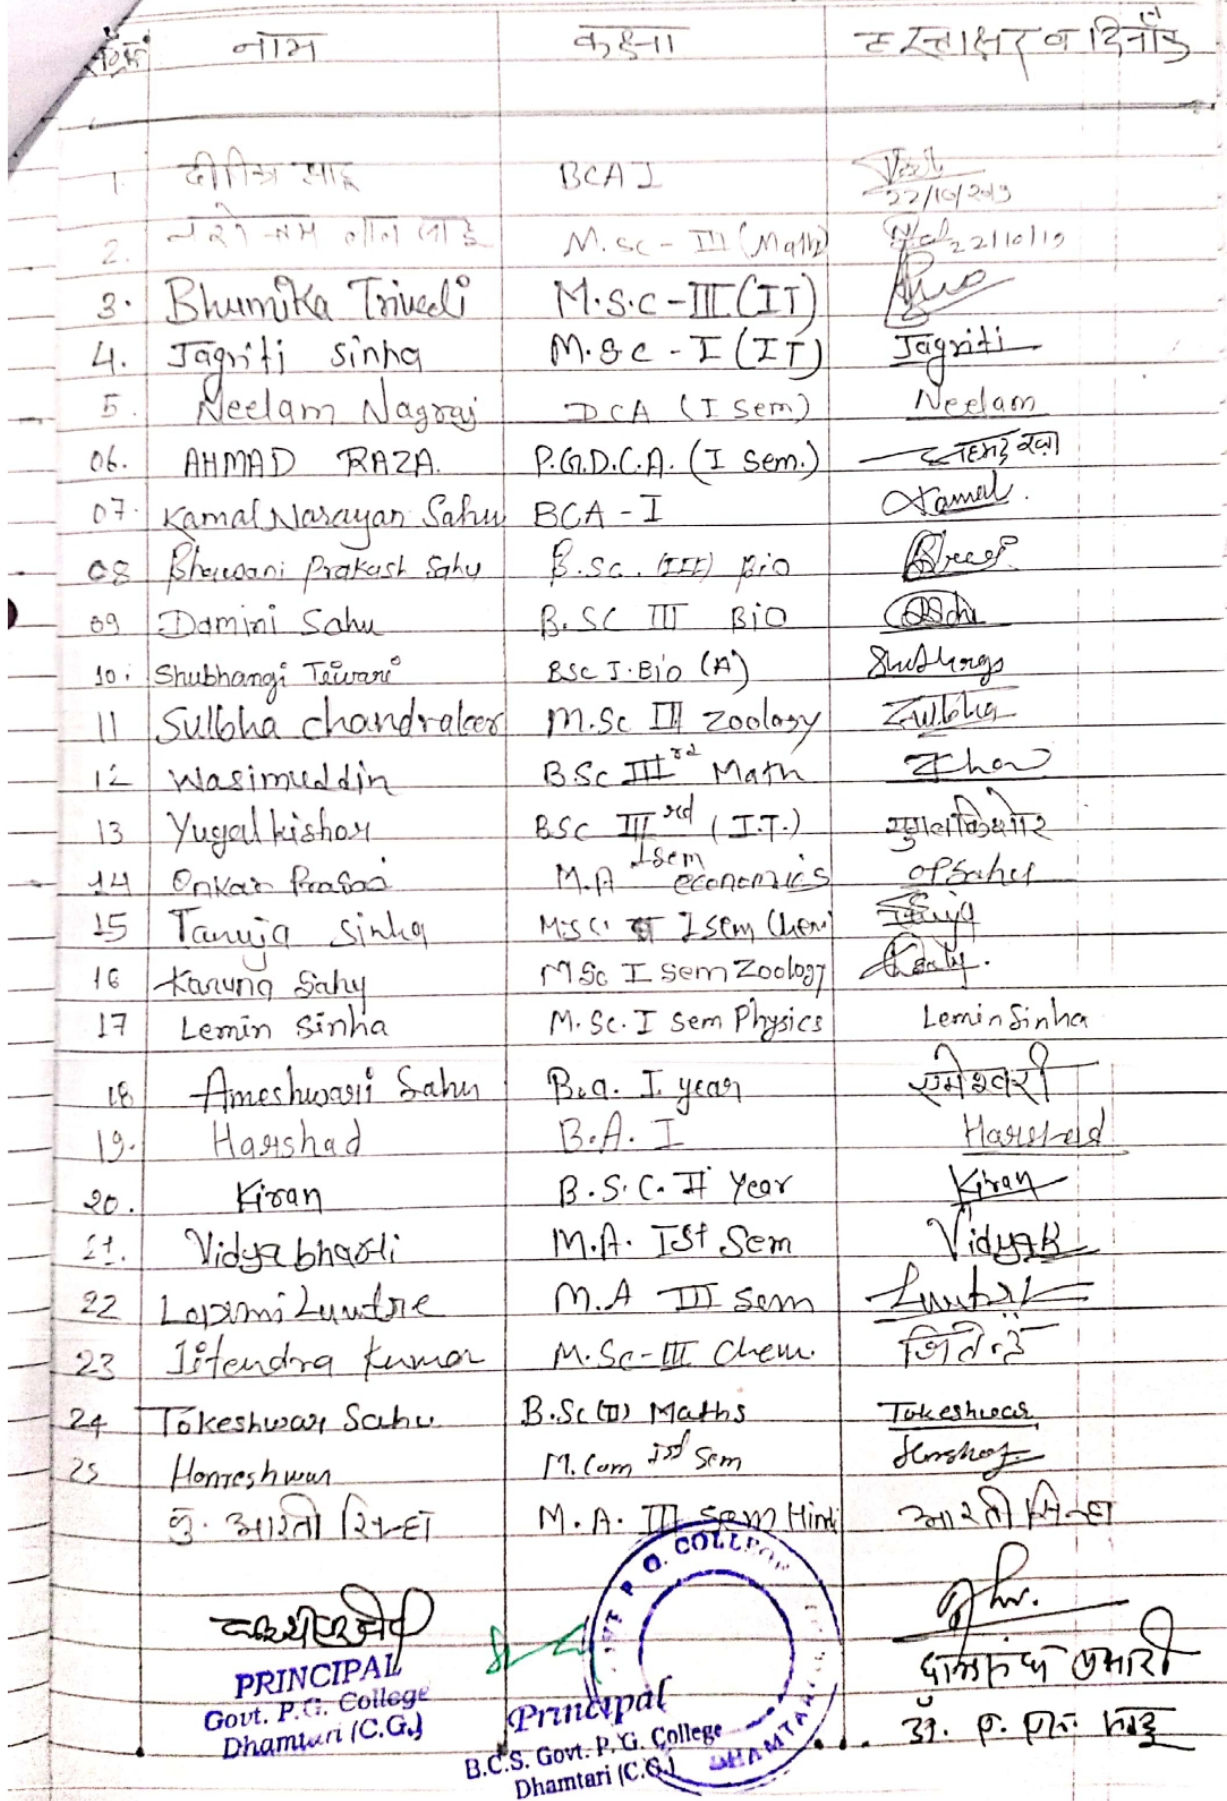 नाम कक्षा हस्ताक्षर व दिनाँक
1. साहू BCA I 22/10/2019
2. M.sc - III (Math) 22/10/19
3. Bhumika Trivedi M.S.C - III (IT)
4. Jagriti Sinha M.S.C - I (IT) Jagriti
5. Neelam Nagraj DCA (I Sem) Neelam
06. AHMAD RAZA. P.G.D.C.A. (I Sem.) अहमद रज़ा
07. Kamal Narayan Sahu BCA - I Kamal.
08 Bhawani Prakash Sahu B.Sc. (III) Bio
09 Damini Sahu B.SC III BiO
10. Shubhangi Tewari BSc I. Bio (A) Shubhangi
11 Sulbha Chandraker M.Sc III Zoology Sulbha
12 Wasimuddin B.Sc IIIrd Math Khan
13 Yugalkishor BSC IIIrd (I.T.) युगलकिशोर
14 Onkar Prasad M.A Isem economics OPSahu
15 Tanuja Sinha M.SC. I sem Chem
16 Karuna Sahu MSc I Sem Zoology
17 Lemin Sinha M.Sc. I Sem Physics Lemin Sinha
18 Ameshwari Sahu B.a. I year एमेश्वरी
19. Harshad B.A. I Harshad
20. Kiran B.S.C. II Year Kiran
21. Vidya bharti M.A. Ist Sem VidyaB
22 Laxmi Luntre M.A III sem
23 Jitendra Kumar M.Sc-III Chem. जितेन्द्र
24 Tokeshwar Sahu B.Sc (II) Maths Tokeshwar
25 Homeshwar M.Com Ist Sem
कु. आरती सिन्हा M.A. III Sem Hindi आरती सिन्हा
PRINCIPAL
Govt. P.G. College
Dhamtari (C.G.)
Principal
B.C.S. Govt. P.G. College
Dhamtari (C.G.)
P. G. COLLEGE
DHAMTARI